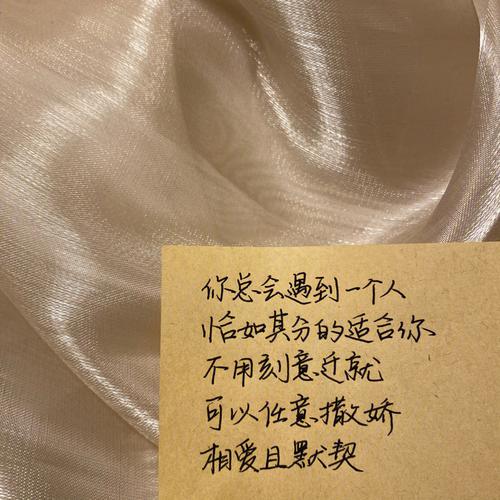 你总会遇到一个人
恰如其分的适合你
不用刻意迁就
可以任意撒娇
相爱且默契